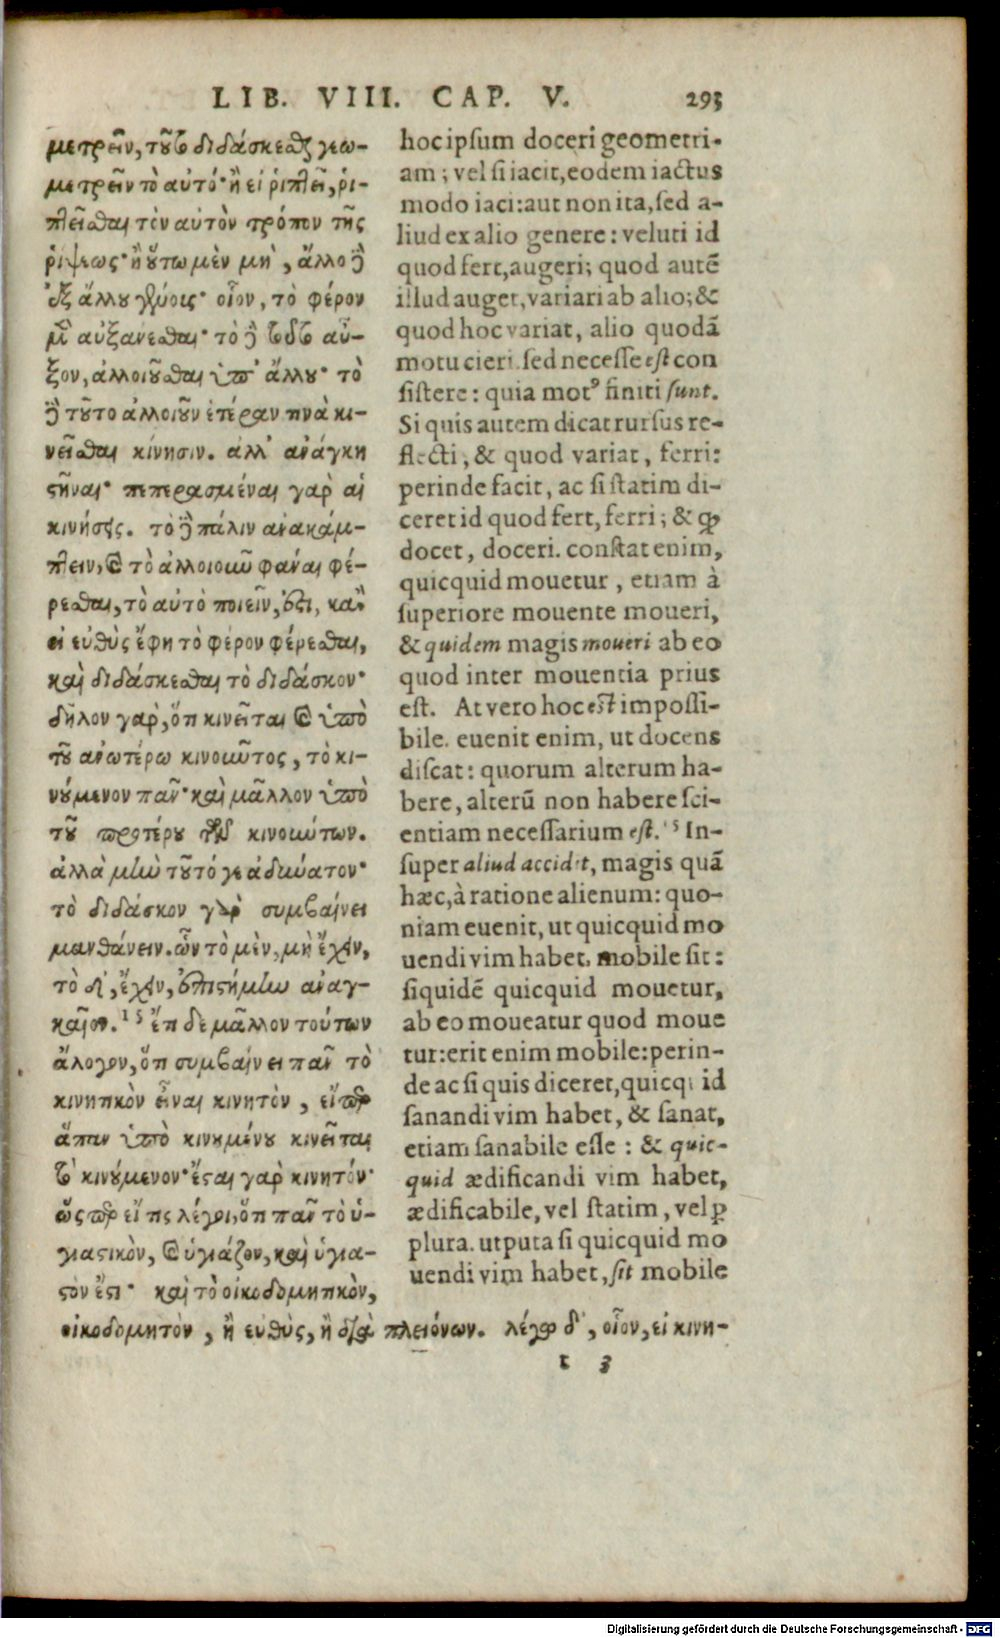 LIB. VIII. CAP. V. 295
μετρεῖν, τοῦτο διδάσκεσθαι γεω-
μετρεῖν τὸ αὐτό· ἢ εἰ ῥιπτεῖ, ῥι-
πτεῖσθαι τὸν αὐτὸν τρόπον τῆς
ῥίψεως· ἢ οὕτω μὲν μὴ, ἄλλο δὲ
ἐξ ἄλλου γένους· οἷον, τὸ φέρον
μὲν αὐξάνεσθαι· τὸ δὲ τοῦτο αὖ-
ξον, ἀλλοιοῦσθαι ὑπ' ἄλλου· τὸ
δὲ τοῦτο ἀλλοιοῦν ἑτέραν τινὰ κι-
νεῖσθαι κίνησιν. ἀλλ' ἀνάγκη
στῆναι· πεπερασμέναι γὰρ αἱ
κινήσεις. τὸ δὲ πάλιν ἀνακάμ-
πτειν, καὶ τὸ ἀλλοιοῦν φάναι φέ-
ρεσθαι, τὸ αὐτὸ ποιεῖν, ἐστὶ, κἂν
εἰ εὐθὺς ἔφη τὸ φέρον φέρεσθαι,
καὶ διδάσκεσθαι τὸ διδάσκον·
δῆλον γὰρ, ὅτι κινεῖται καὶ ὑπὸ
τοῦ ἀνωτέρω κινοῦντος, τὸ κι-
νούμενον πᾶν· καὶ μᾶλλον ὑπὸ
τοῦ προτέρου τῶν κινούντων.
ἀλλὰ μὴν τοῦτό γε ἀδύνατον·
τὸ διδάσκον γὰρ συμβαίνει
μανθάνειν. ὧν τὸ μὲν, μὴ ἔχειν,
τὸ δ', ἔχειν, ἐπιστήμην ἀναγ-
καῖον. 15 ἔτι δὲ μᾶλλον τούτων
ἄλογον, ὅτι συμβαίνει πᾶν τὸ
κινητικὸν εἶναι κινητὸν, εἴπερ
ἅπαν ὑπὸ κινουμένου κινεῖται
τὸ κινούμενον· ἔσται γὰρ κινητόν·
ὥσπερ εἴ τις λέγοι, ὅτι πᾶν τὸ ὑ-
γιαστικὸν, καὶ ὑγιάζον, καὶ ὑγια-
στόν ἐστι· καὶ τὸ οἰκοδομητικὸν,
οἰκοδομητὸν, ἢ εὐθὺς, ἢ διὰ πλειόνων. λέγω δ', οἷον, εἰ κινη-
hoc ipsum doceri geometri-
am; vel si iacit, eodem iactus
modo iaci: aut non ita, sed a-
liud ex alio genere: veluti id
quod fert, augeri; quod autē
illud auget, variari ab alio; &
quod hoc variat, alio quodā
motu cieri. sed necesse est con
sistere: quia motꝰ finiti sunt.
Si quis autem dicat rursus re-
flecti, & quod variat, ferri:
perinde facit, ac si statim di-
ceret id quod fert, ferri; & qđ
docet, doceri. constat enim,
quicquid mouetur, etiam à
superiore mouente moueri,
& quidem magis moueri ab eo
quod inter mouentia prius
est. At vero hoc est impossi-
bile. euenit enim, ut docens
discat: quorum alterum ha-
bere, alterū non habere sci-
entiam necessarium est. 15 In-
super aliud accidit, magis quā
hæc, à ratione alienum: quo-
niam euenit, ut quicquid mo
uendi vim habet, mobile sit:
siquidē quicquid mouetur,
ab eo moueatur quod moue
tur: erit enim mobile: perin-
de ac si quis diceret, quicquid
sanandi vim habet, & sanat,
etiam sanabile esse: & quic-
quid ædificandi vim habet,
ædificabile, vel statim, vel ꝑ
plura. utputa si quicquid mo
uendi vim habet, sit mobile
t 3
Digitalisierung gefördert durch die Deutsche Forschungsgemeinschaft - DFG